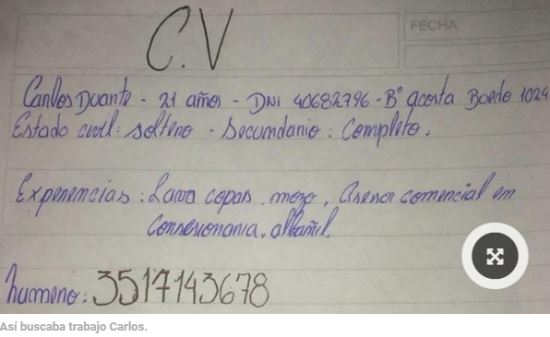 C.V
FECHA
Carlos Duarte - 21 años - DNI 40682796 - B° acosta Boedo 1024
Estado civil: soltero - Secundario: Completo.
Experiencias: Lava copas, mozo, Asesor comercial en
Consesionaria, albañil.
numero: 3517143678
Así buscaba trabajo Carlos.